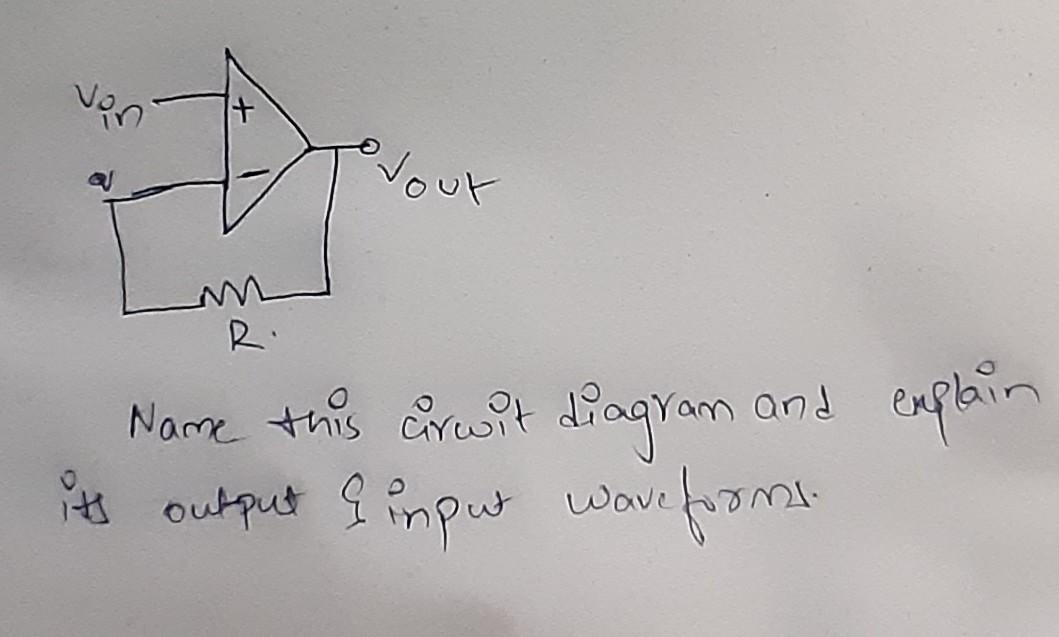 Vin
+
-
Vout
R.
Name this circuit diagram and explain
its output & input waveforms.